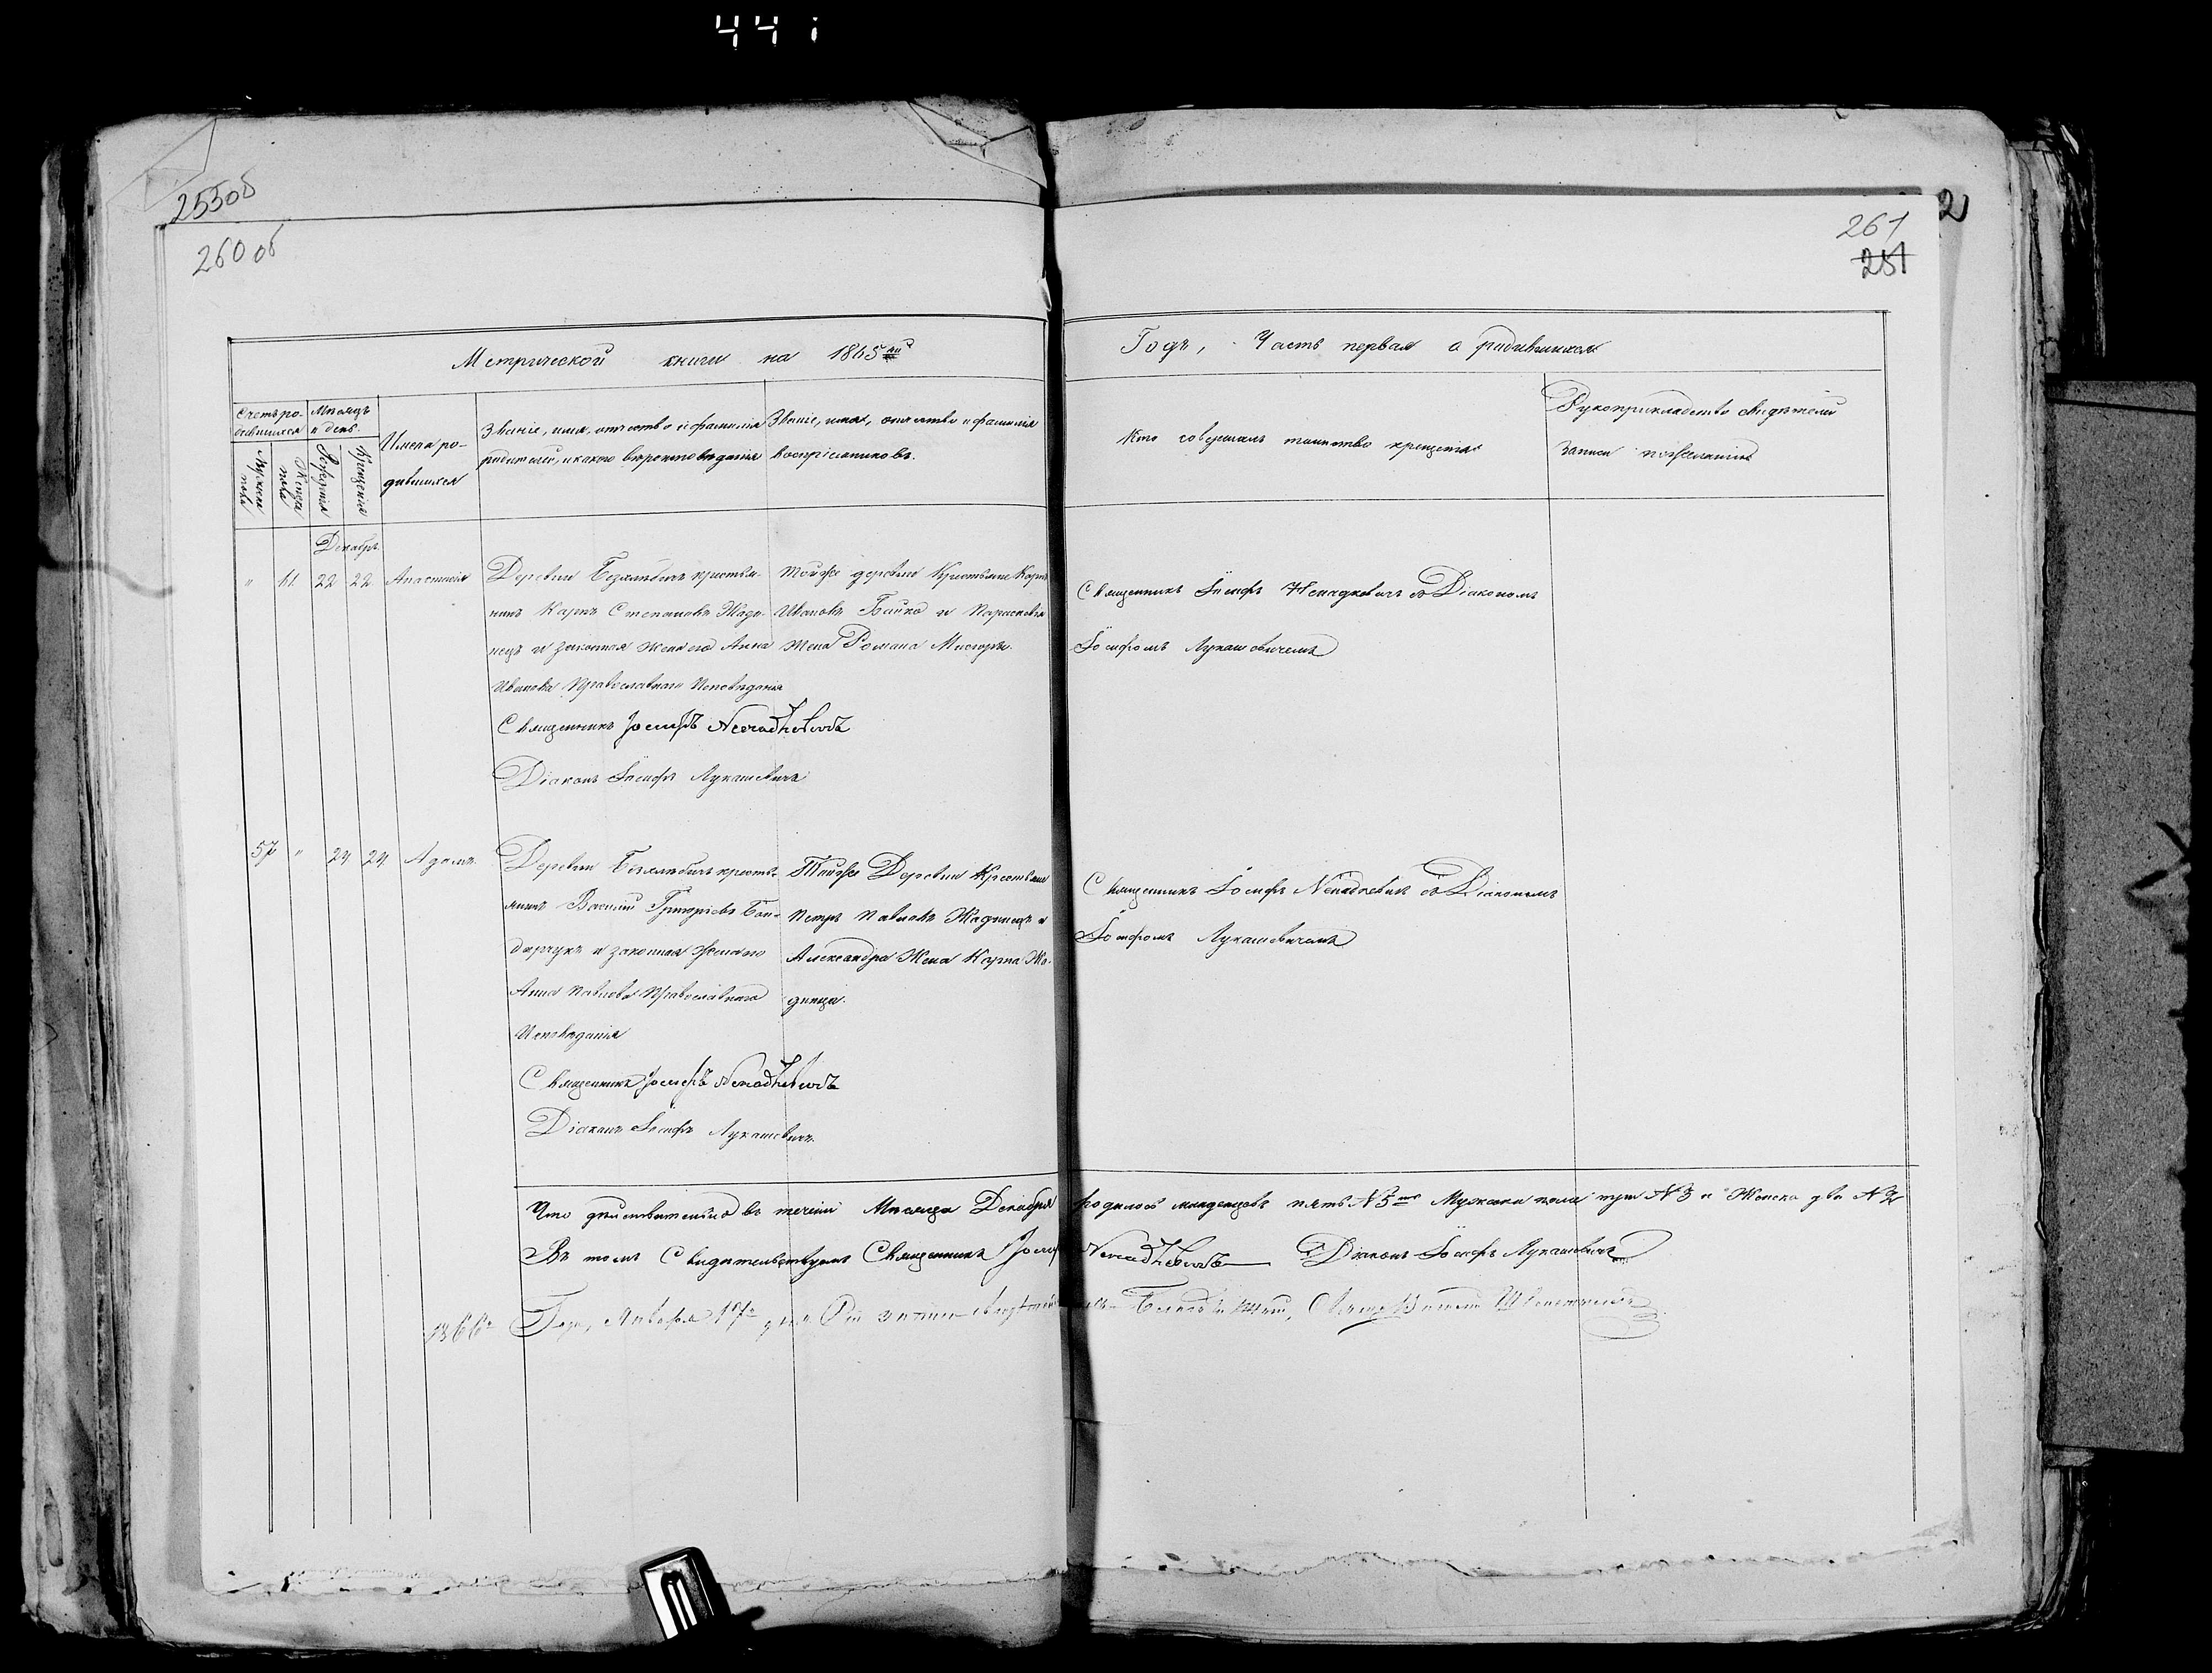 44 i
255об
260 об
2
261
251
Метрической книги на 1865ый
Годъ, Часть первая о родившихся
Счетъ ро-
дившихся
Мѣсяцъ
и день.
Мужска пола
Женска пола
Рожденія
Крещенія
Имена ро-
дившихся
Званіе, имя, отчество и фамилія
родителей, и какого вѣроисповѣданія
Званіе, имя, отчество и фамилія
воспріемниковъ.
Кто совершалъ таинство крещенія
Рукоприкладство свидѣтелей
записи по желанію
Декабрь
" 61 22 22 Анастасія
Деревни Безлюбичъ крестья-
нинъ Карпъ Степановъ Жадя-
нецъ и законная жена его Анна
Иванова Православнаго Исповѣданія
Священникъ Іосифъ Ненадкевичъ
Діаконъ Іосифъ Лукашевичъ
Тойже деревни Крестьяне Карпъ
Ивановъ Бойко и Парасковья
жена Романа
Священникъ Іосифъ Ненадкевичъ съ Діакономъ
Іосифомъ Лукашевичемъ
57 " 24 24 Адамъ.
Деревни Безлюбичъ кресть-
янинъ Василій Григорьевъ Бон-
дарчукъ и законная жена его
Анна Павлова Православнаго
Исповѣданія
Священникъ Іосифъ Ненадкевичъ
Діаконъ Іосифъ Лукашевичъ.
Тойже Деревни Крестьяне
Петръ Павловъ Жаднецъ и
Александра Жена Карпа Жа-
днеца.
Священникъ Іосифъ Ненадкевичъ съ Діакономъ
Іосифомъ Лукашевичемъ
Что дѣйствительно въ теченіи Мѣсяца Декабря родилось младенцевъ пять №5ть Мужска пола три №3 и Женска два №2
Въ томъ Свидѣтельствуемъ Священникъ Іосифъ Ненадкевичъ Діаконъ Іосифъ Лукашевичъ
1866го Года, Января 17го дня